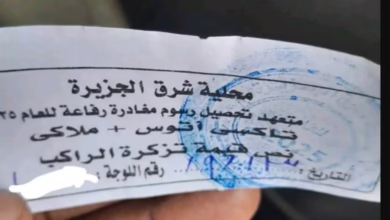 محلية شرق الجزيرة
متعهد تحصيل رسوم مغادرة رفاعة للعام ٢٥
تاكسي أتوس + ملاكي
قيمة تزكرة الراكب
التاريخ : رقم اللوحة :
2025